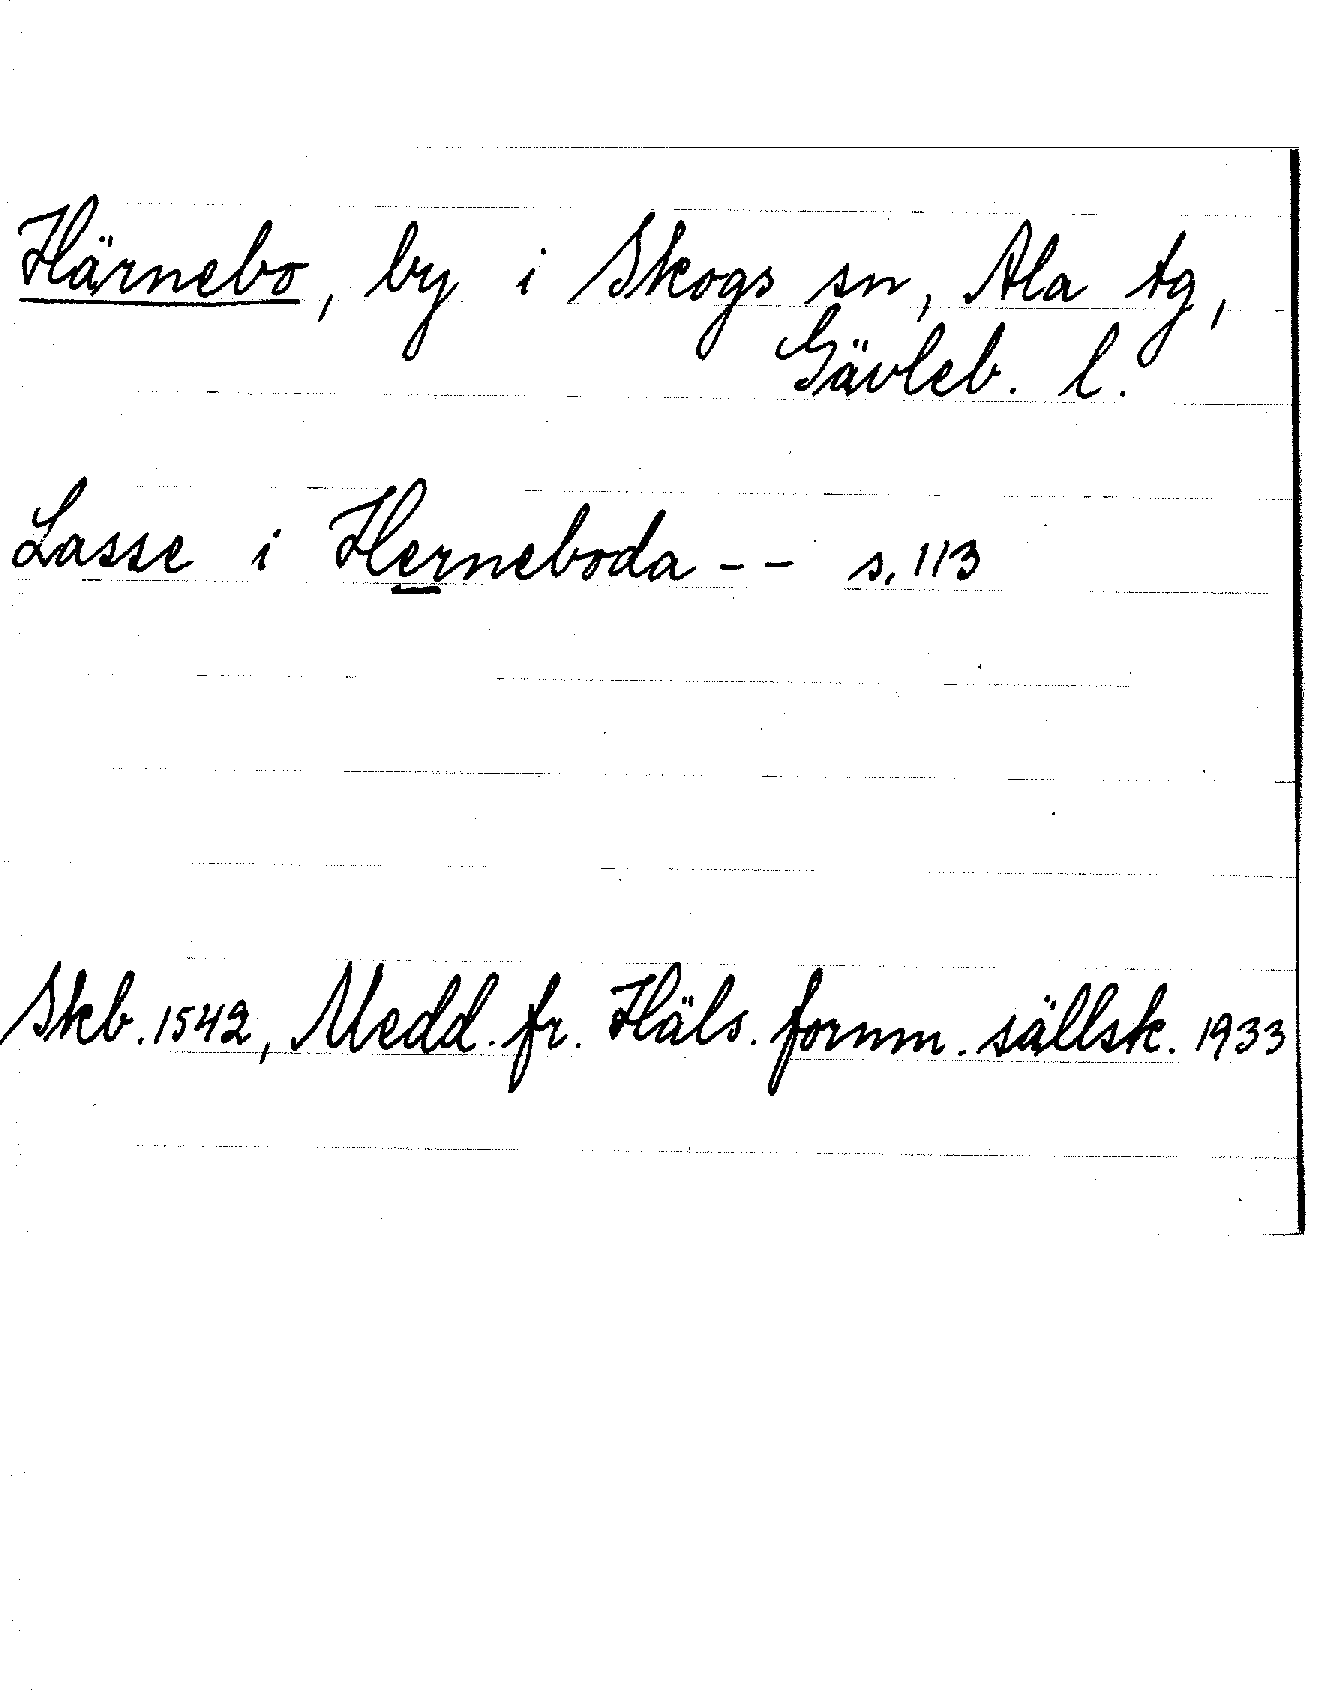 Härnebo, by i Skogs sn, Ala tg,
Gävleb. l.
Lasse i Herneboda -- s. 113
Skb. 1542, Medd. fr. Häls. fornm. sällsk. 1933